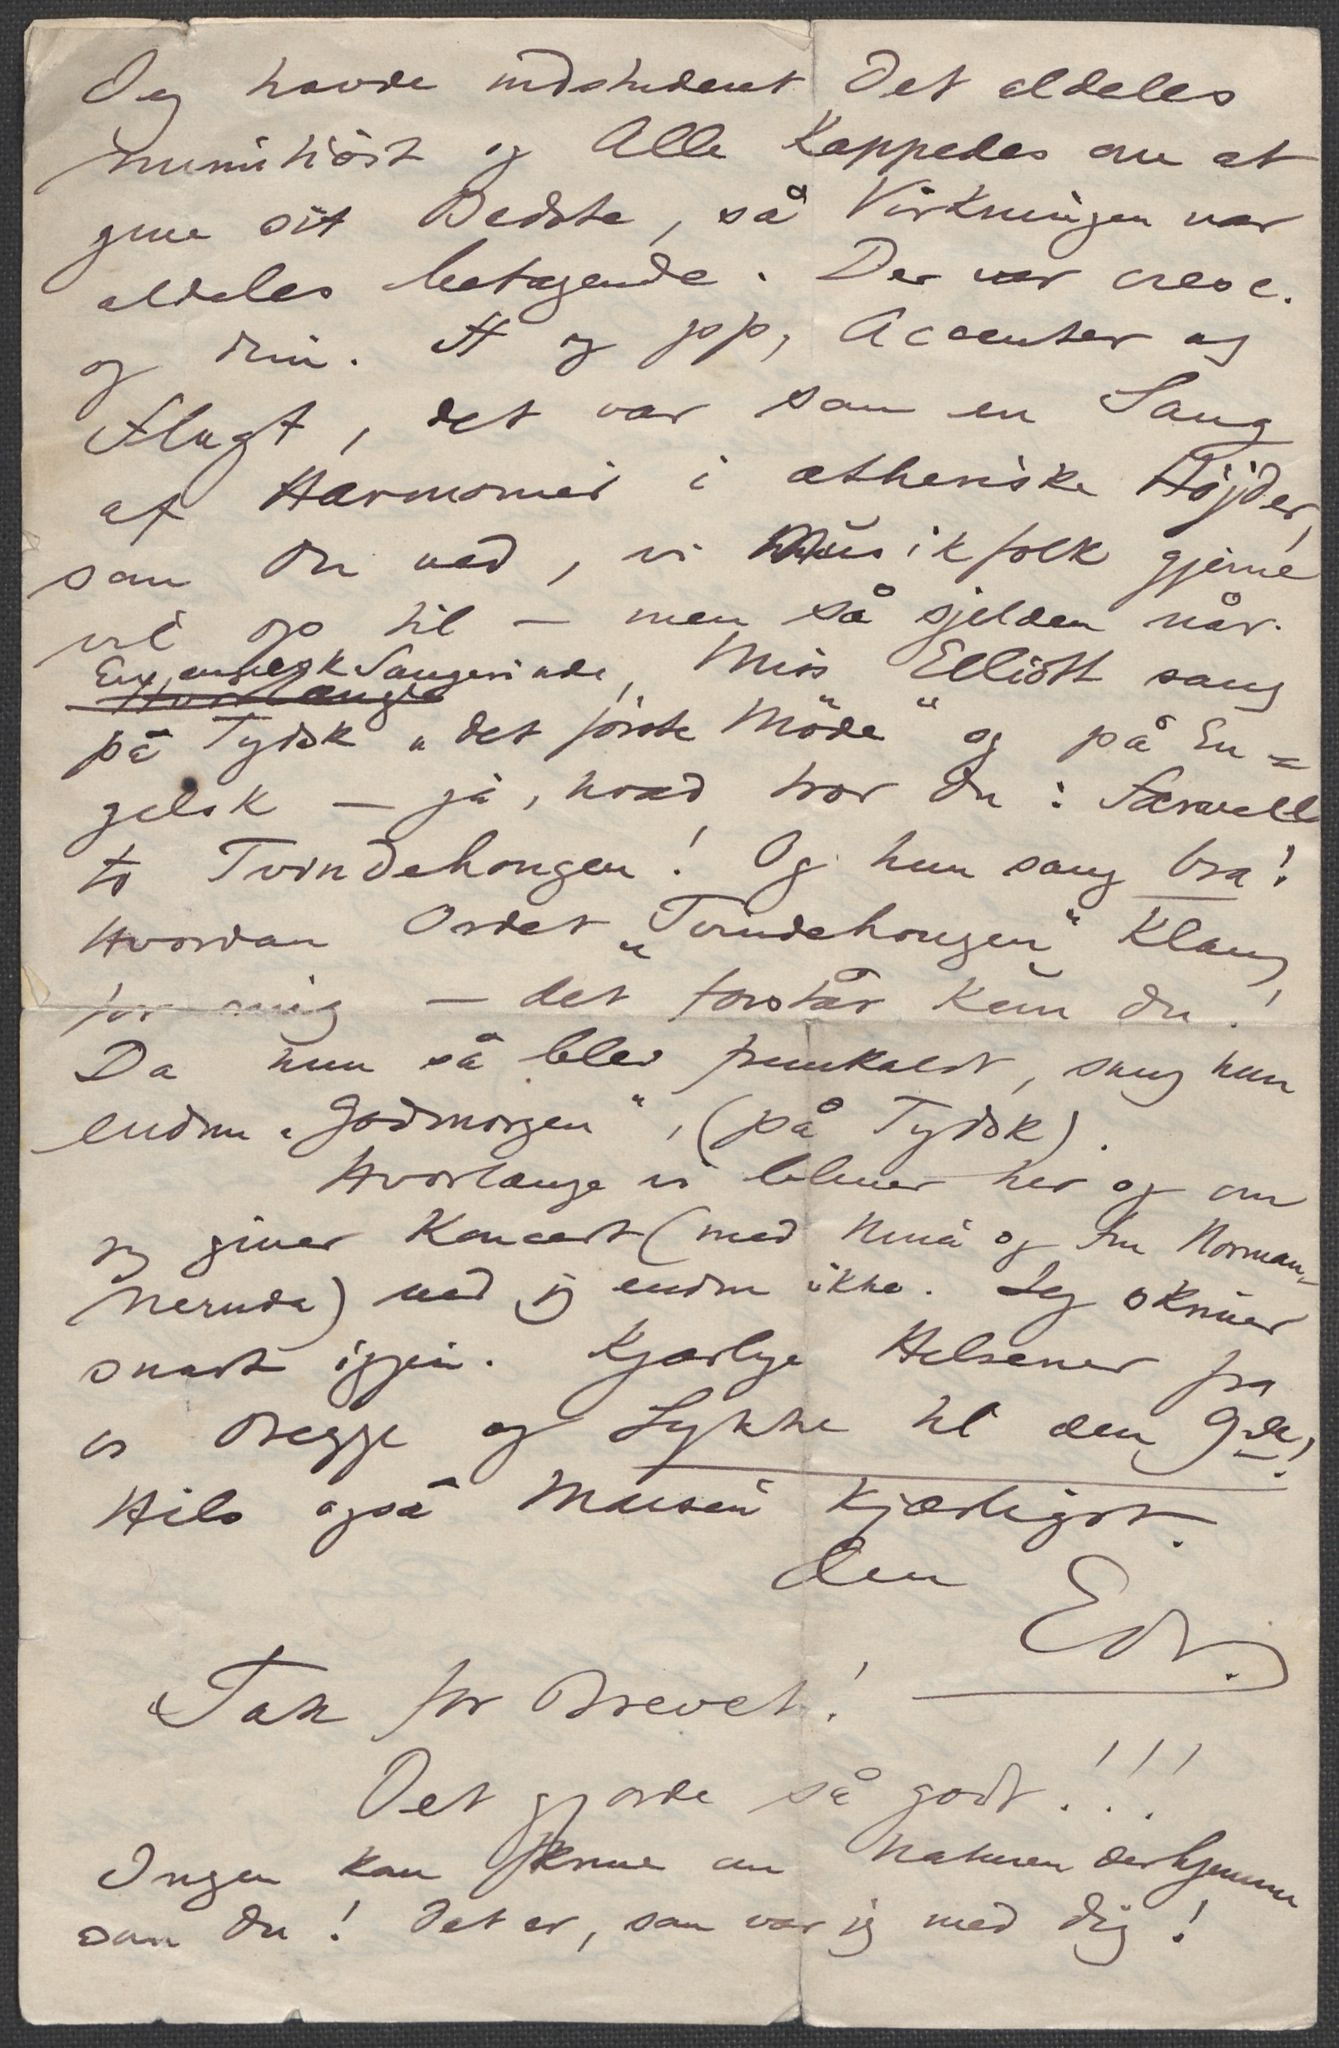 Jeg havde indstuderet Det aldeles
minutiöst og Alle Kappedes om at
give sit Bedste, så Virkningen var
aldeles betagende. Der var cresc.
og dim. ff og pp, Accenter og
Flugt, det var som en Sang
af Harmonier i ætheriske Højder,
som Du ved, vi Musikfolk gjerne
vil op til – men så sjelden når.
En engelsk Sangerinde, Miss Elliott sang
på Tydsk „det første Möde“ og på En=
gelsk – ja, hvad tror Du: Farewell
to Tvindehougen! Og hun sang bra!
Hvordan Ordet „Tvindehougen“ Klang
for mig – det forstår Kun Du!
Da hun så blev fremkaldt, sang hun
endnu „Godmorgen“, (på Tydsk).
Hvorlænge vi bliver her og om
jeg giver Koncert (med Nina og Fru Norman-
Neruda) ved jeg endnu ikke. Jeg skriver
snart igjen. Kjærlige Hilsener fra
os Begge og Lykke til den 9de!
Hils også Marie kjærligst.
Din
Edv.
Tak for Brevet!
Det gjorde så godt!!!
Ingen kan skrive om Naturen derhjemme
som Du! Det er, som var jeg med Dig!